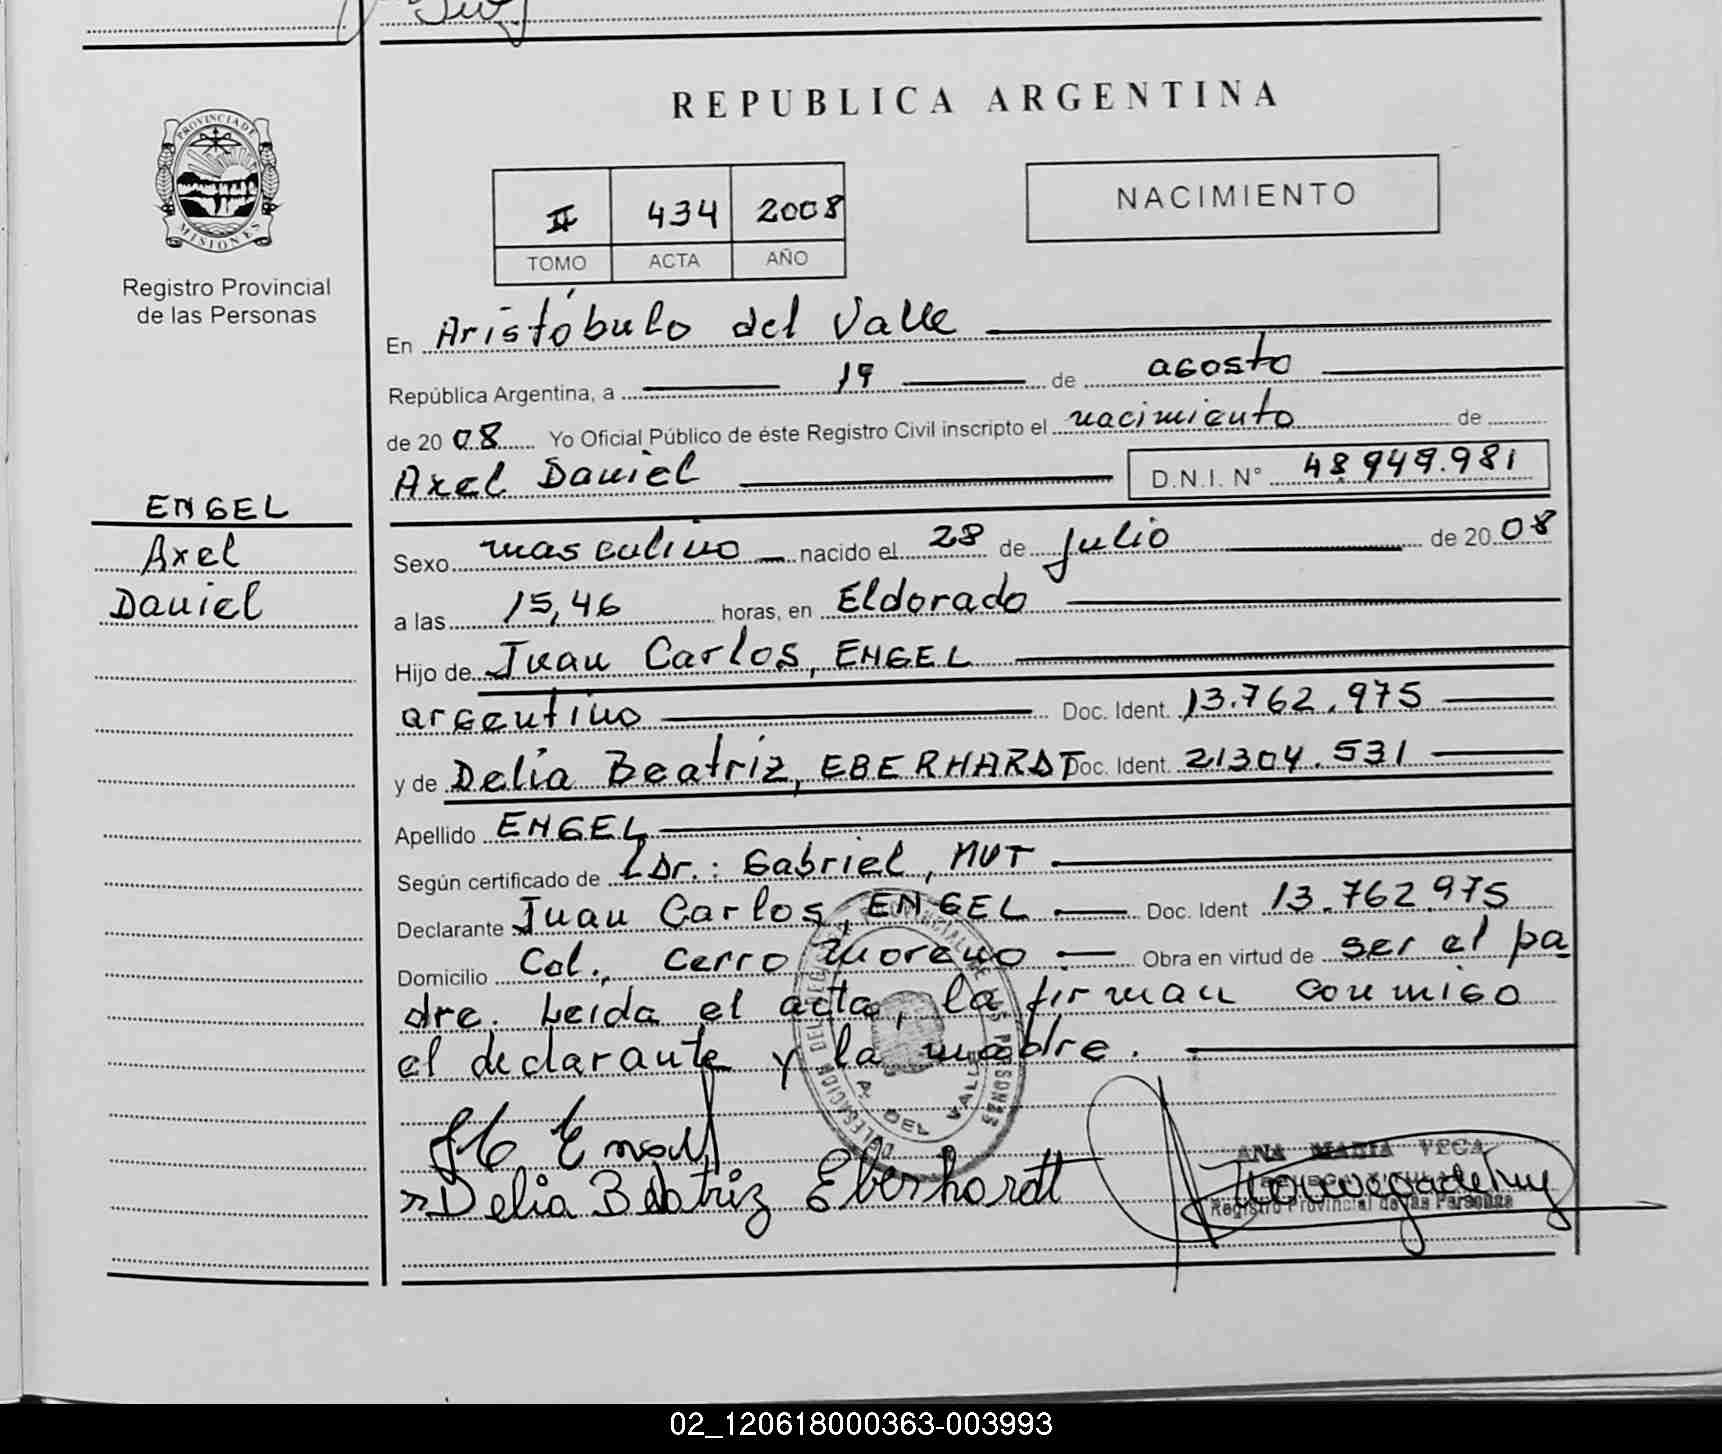 REPUBLICA ARGENTINA
PROVINCIA DE MISIONES
Registro Provincial
de las Personas
II 434 2008
TOMO ACTA AÑO
NACIMIENTO
En Aristóbulo del Valle
República Argentina, a 19 de agosto
de 2008 Yo Oficial Público de éste Registro Civil inscripto el nacimiento de
Axel Daniel D.N.I. Nº 48.949.981
ENGEL
Axel
Daniel
Sexo masculino nacido el 28 de Julio de 2008
a las 15,46 horas, en Eldorado
Hijo de Juan Carlos, ENGEL
argentino Doc. Ident. 13.762.975
y de Delia Beatriz, EBERHARDT Doc. Ident. 21304.531
Apellido ENGEL
Según certificado de Dr.: Gabriel, MUT
Declarante Juan Carlos, ENGEL Doc. Ident 13.762.975
Domicilio Col. Cerro Moreno Obra en virtud de ser el pa
dre. Leida el acta, la firman conmigo
el declarante y la madre.
DELEGACION DEL REGISTRO PROVINCIAL DE LAS PERSONAS
A. DEL VALLE
Delia Beatriz Eberhardt
ANA MARIA VEGA
Registro Provincial de las Personas
02_120618000363-003993